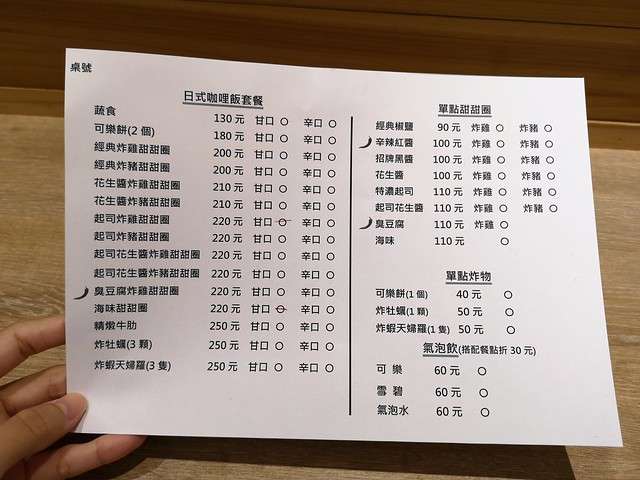 桌號
日式咖哩飯套餐
蔬食 130 元 甘口 ○ 辛口 ○
可樂餅(2 個) 180 元 甘口 ○ 辛口 ○
經典炸雞甜甜圈 200 元 甘口 ○ 辛口 ○
經典炸豬甜甜圈 200 元 甘口 ○ 辛口 ○
花生醬炸雞甜甜圈 210 元 甘口 ○ 辛口 ○
花生醬炸豬甜甜圈 210 元 甘口 ○ 辛口 ○
起司炸雞甜甜圈 220 元 甘口 ○ 辛口 ○
起司炸豬甜甜圈 220 元 甘口 ○ 辛口 ○
起司花生醬炸雞甜甜圈 220 元 甘口 ○ 辛口 ○
起司花生醬炸豬甜甜圈 220 元 甘口 ○ 辛口 ○
臭豆腐炸雞甜甜圈 220 元 甘口 ○ 辛口 ○
海味甜甜圈 220 元 甘口 ○ 辛口 ○
精燉牛肋 250 元 甘口 ○ 辛口 ○
炸牡蠣(3 顆) 250 元 甘口 ○ 辛口 ○
炸蝦天婦羅(3 隻) 250 元 甘口 ○ 辛口 ○
單點甜甜圈
經典椒鹽 90 元 炸雞 ○ 炸豬 ○
辛辣紅醬 100 元 炸雞 ○ 炸豬 ○
招牌黑醬 100 元 炸雞 ○ 炸豬 ○
花生醬 100 元 炸雞 ○ 炸豬 ○
特濃起司 110 元 炸雞 ○ 炸豬 ○
起司花生醬 110 元 炸雞 ○ 炸豬 ○
臭豆腐 110 元 炸雞 ○
海味 110 元 ○
單點炸物
可樂餅(1 個) 40 元 ○
炸牡蠣(1 顆) 50 元 ○
炸蝦天婦羅(1 隻) 50 元 ○
氣泡飲(搭配餐點折 30 元)
可 樂 60 元 ○
雪 碧 60 元 ○
氣泡水 60 元 ○